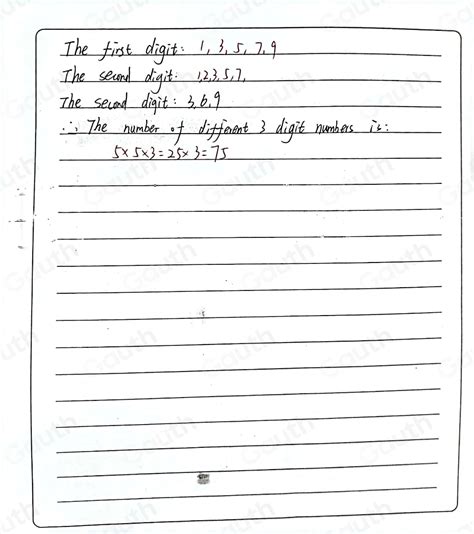 The first digit: 1, 3, 5, 7, 9
The second digit: 1,2,3,5,7,
The second digit: 3,6,9
∴ The number of different 3 digit numbers is:
5×5×3=25×3=75